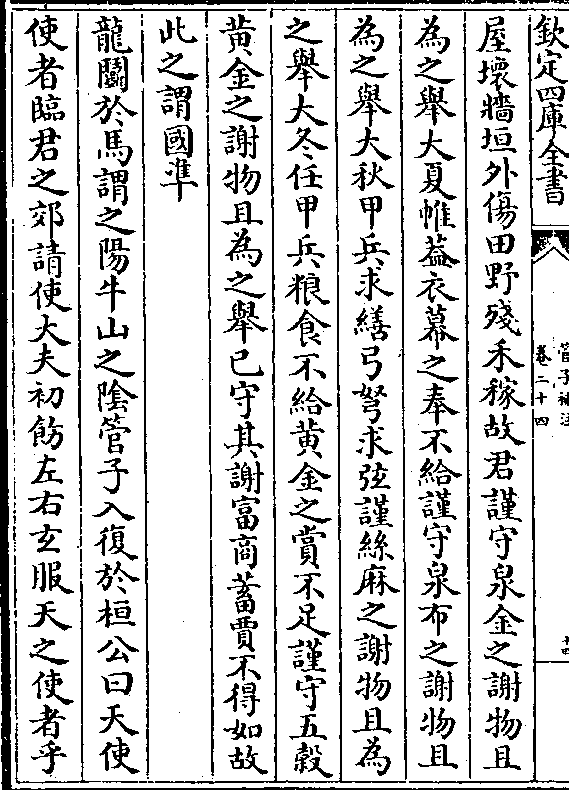 欽定四庫全書
管子補注
卷二十四
十四
屋壞牆垣外傷田野殘禾稼故君謹守泉金之謝物且
為之舉大夏帷葢衣幕之奉不給謹守泉布之謝物且
為之舉大秋甲兵求繕弓弩求弦謹絲麻之謝物且為
之舉大冬任甲兵粮食不給黄金之賞不足謹守五穀
黄金之謝物且為之舉已守其謝富商蓄賈不得如故
此之謂國準
龍鬭於馬謂之陽牛山之陰管子入復於桓公曰天使
使者臨君之郊請使大夫初飭左右玄服天之使者乎